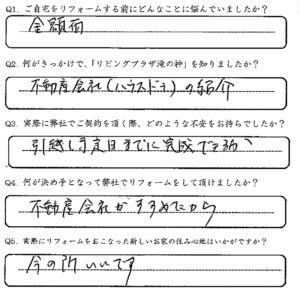 Q1. ご自宅をリフォームする前にどんなことに悩んでいましたか?
金額面
Q2. 何がきっかけで、「リビングプラザ滝の神」を知りましたか?
不動産会社(ハウスドゥ)の紹介
Q3. 実際に弊社でご契約を頂く際、どのような不安をお持ちでしたか?
引越し予定日までに完成できるか
Q4. 何が決め手となって弊社でリフォームをして頂けましたか?
不動産会社がすすめたから
Q5. 実際にリフォームをおこなった新しいお家の住み心地はいかがですか?
今の所いいです